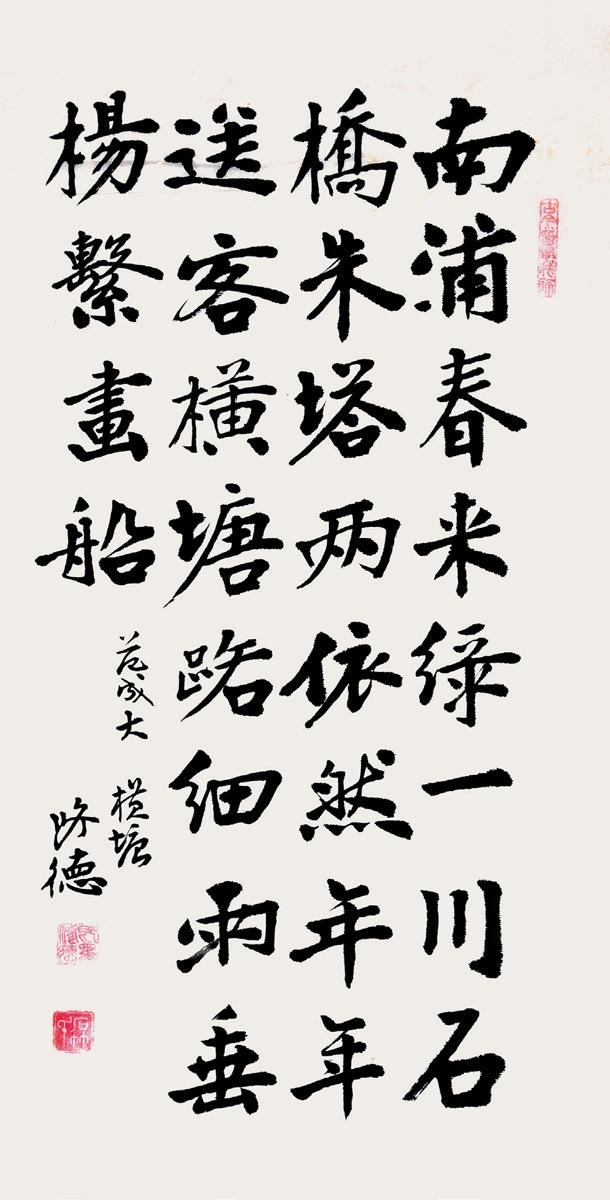 南浦春来綠一川石
橋朱塔两依然年年
送客横塘路细雨垂
楊繫畫船
范成大 橫塘
德